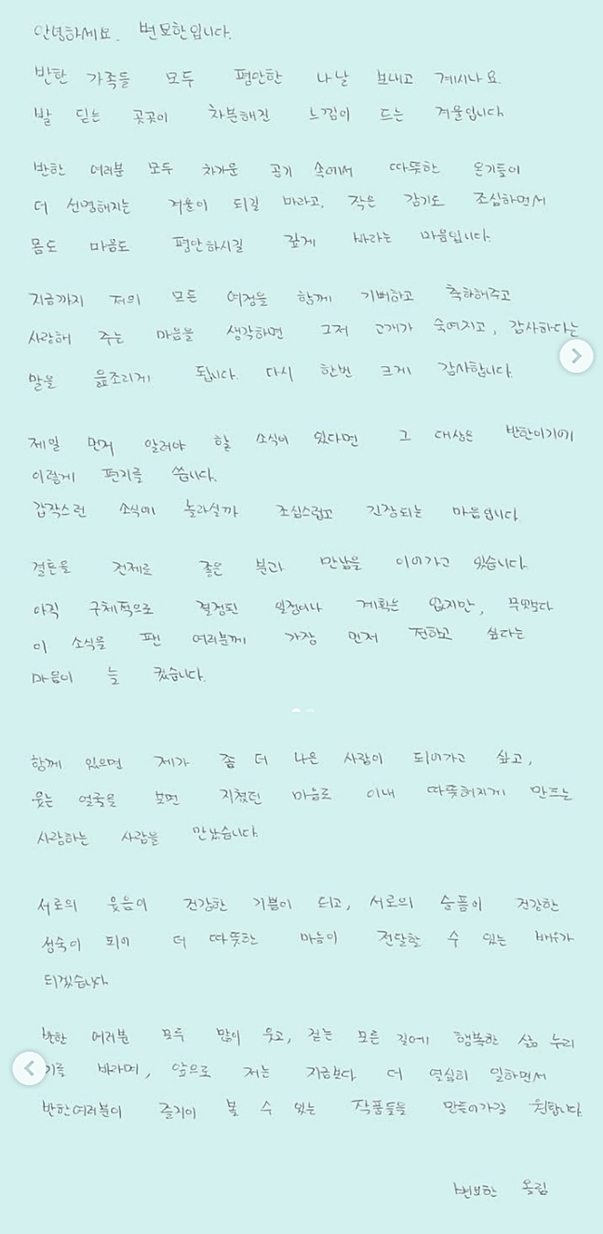 안녕하세요. 변요한입니다.
반한 가족들 모두 평안한 나날 보내고 계시나요.
발 딛는 곳곳이 차분해진 느낌이 드는 겨울입니다
반한 여러분 모두 차가운 공기 속에서 따뜻한 온기들이
더 선명해지는 겨울이 되길 바라고, 작은 감기도 조심하면서
몸도 마음도 평안하시길 깊게 바라는 마음입니다.
지금까지 저의 모든 여정을 함께 기뻐하고 축하해주고
사랑해 주는 마음을 생각하면 그저 고개가 숙여지고, 감사하다는
말을 읊조리게 됩니다. 다시 한번 크게 감사합니다.
제일 먼저 알려야 할 소식이 있다면 그 대상은 반한이기에
이렇게 편지를 씁니다.
갑작스런 소식에 놀라실까 조심스럽고 긴장되는 마음입니다
결혼을 전제로 좋은 분과 만남을 이어가고 있습니다.
아직 구체적으로 결정된 일정이나 계획은 없지만, 무엇보다
이 소식을 팬 여러분께 가장 먼저 전하고 싶다는
마음이 늘 컸습니다.
함께 있으면 제가 좀 더 나은 사람이 되어가고 싶고,
웃는 얼굴을 보면 지쳤던 마음도 이내 따뜻해지게 만드는
사랑하는 사람을 만났습니다.
서로의 웃음이 건강한 기쁨이 되고, 서로의 슬픔이 건강한
성숙이 되어 더 따뜻한 마음이 전달할 수 있는 배우가
되겠습니다
반한 여러분 모두 많이 웃고, 걷는 모든 길에 행복한 삶 누리
기를 바라며, 앞으로 저는 지금보다 더 열심히 일하면서
반한여러분이 즐거이 볼 수 있는 작품들을 만들어가길 원합니다
변요한 올림